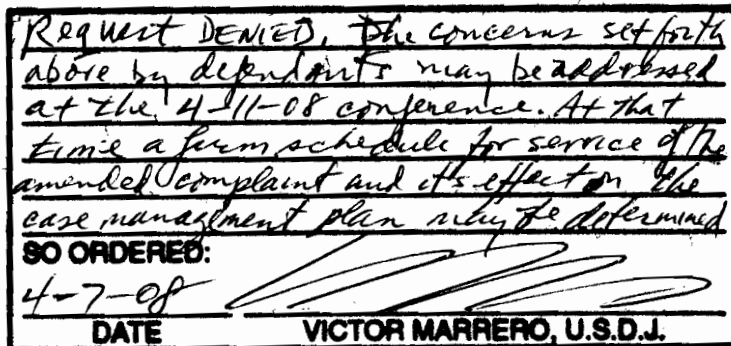 Request DENIED. The concerns set forth
above by defendants may be addressed
at the 4-11-08 conference. At that
time a firm schedule for service of the
amended complaint and it's effect on the
case management plan may be determined
SO ORDERED:
4-7-08
DATE VICTOR MARRERO, U.S.D.J.